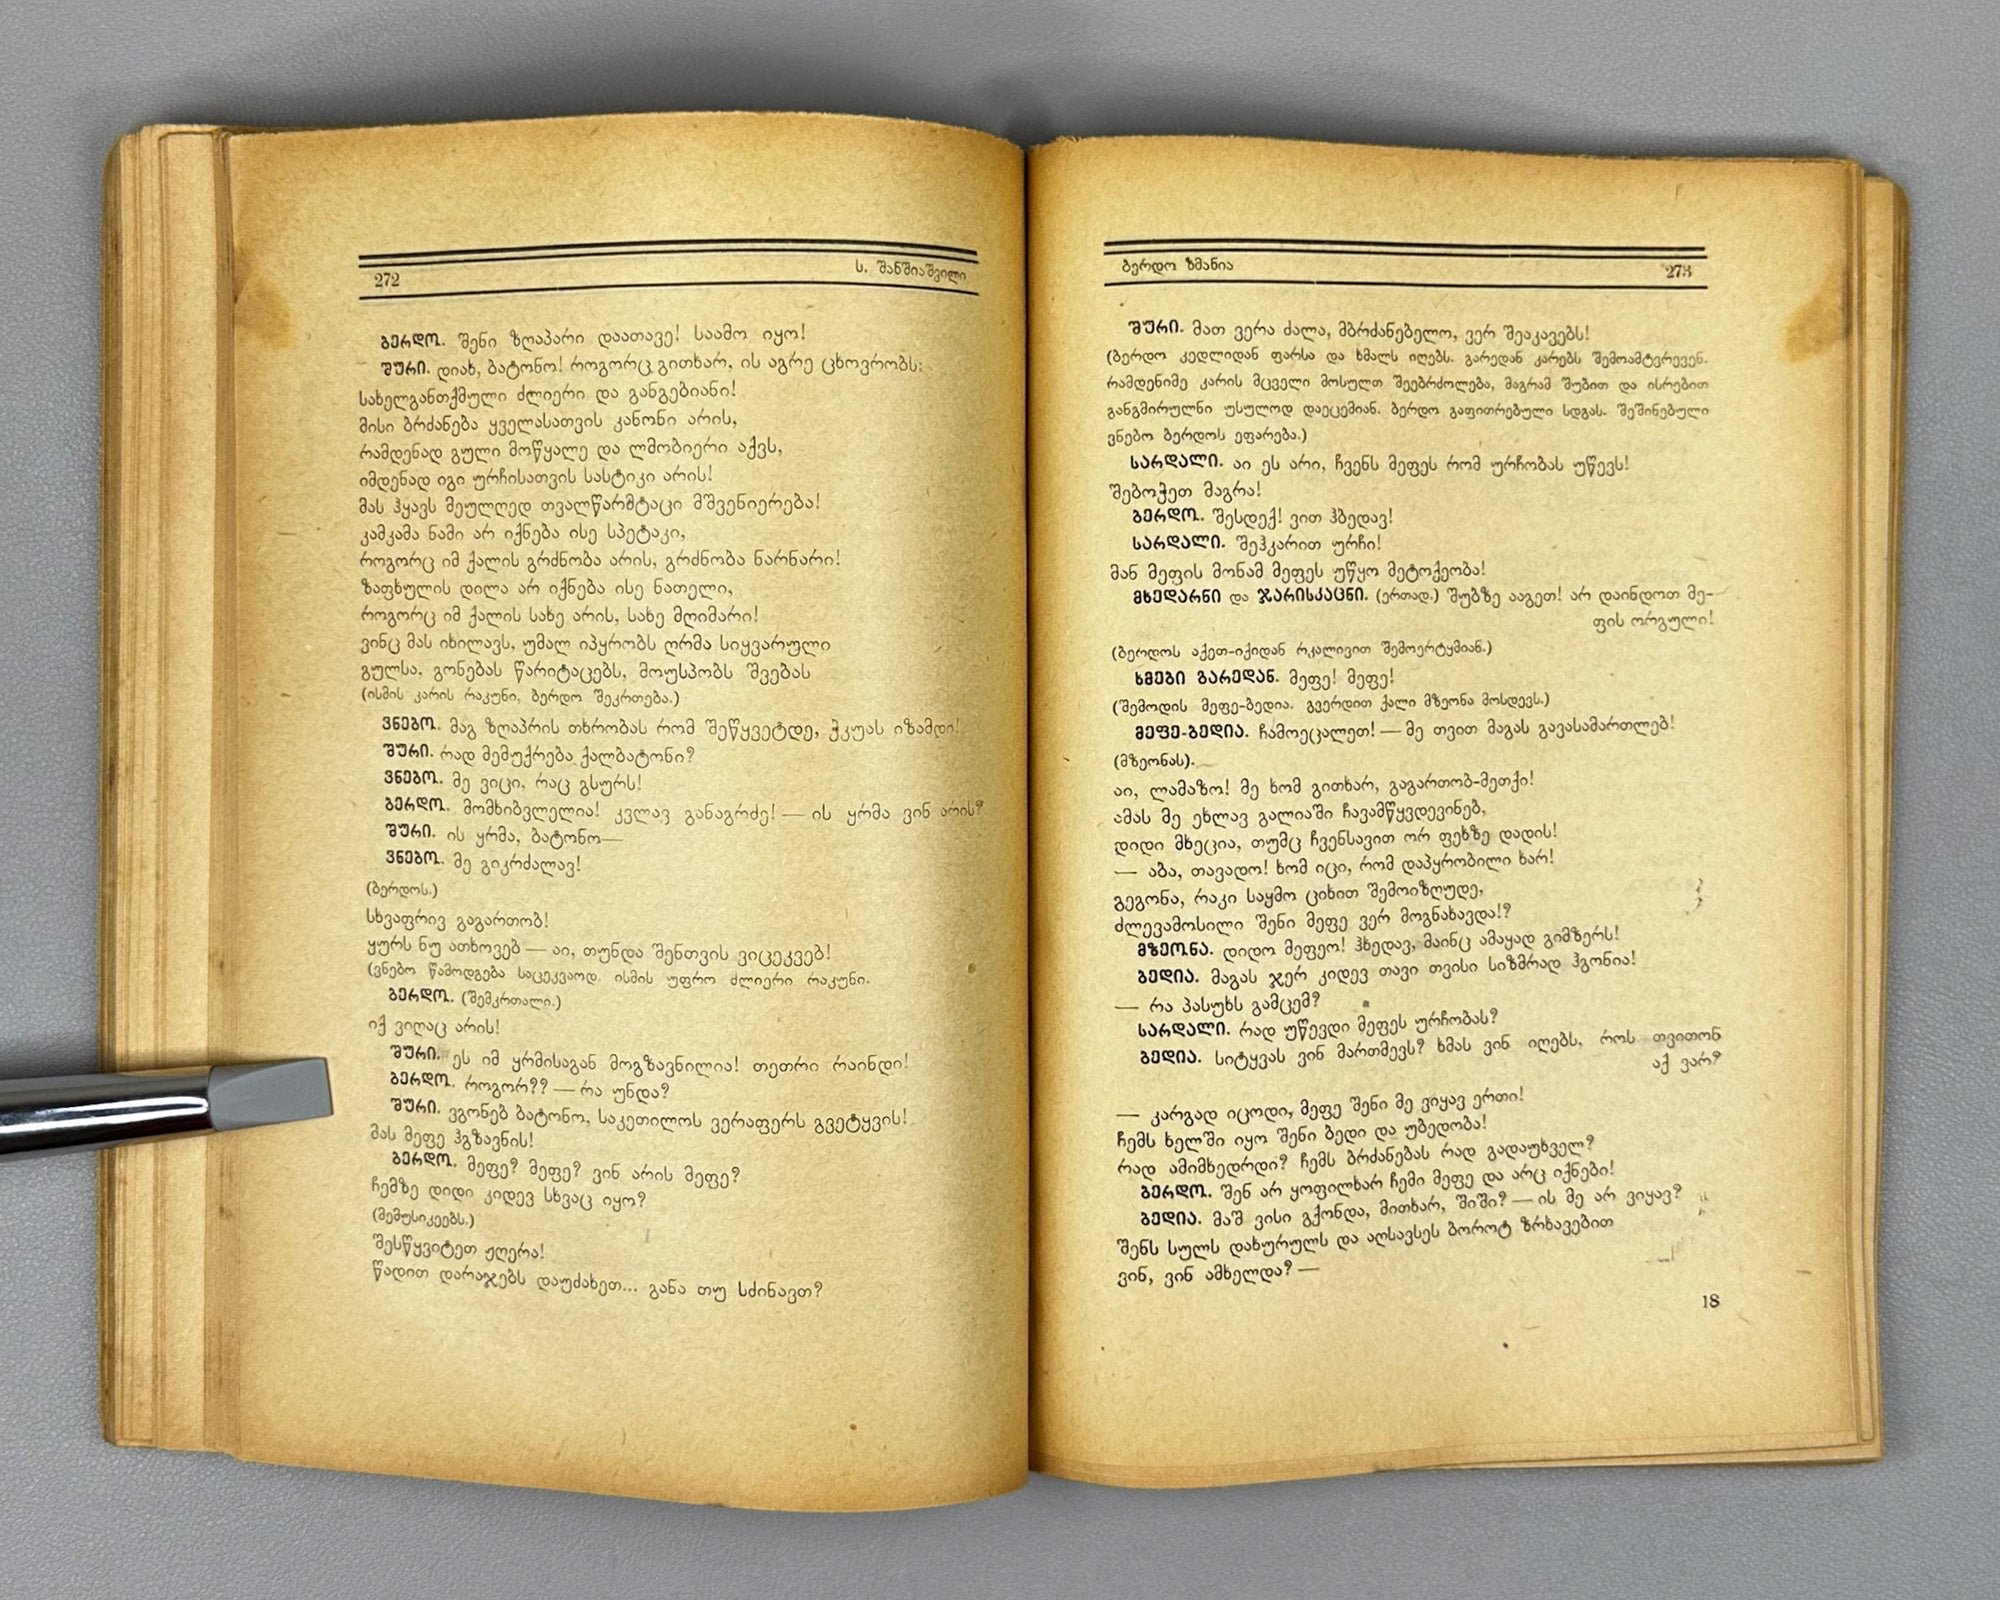 272
ს. შანშიაშვილი
ბერდო. შენი ზღაპარი დაათავე! საამო იყო!
შური. დიახ, ბატონო! როგორც გითხარ, ის აგრე ცხოვრობს:
სახელგანთქმული ძლიერი და განგებიანი!
მისი ბრძანება ყველასათვის კანონი არის,
რამდენად გული მოწყალე და ლმობიერი აქვს,
იმდენად იგი ურჩისათვის სასტიკი არის!
მას ჰყავს მეუღლედ თვალწარმტაცი მშვენიერება!
კამკამა ნამი არ იქნება ისე სპეტაკი,
როგორც იმ ქალის გრძნობა არის, გრძნობა ნარნარი!
ზაფხულის დილა არ იქნება ისე ნათელი,
როგორც იმ ქალის სახე არის, სახე მღიმარი!
ვინც მას იხილავს, უმალ იპყრობს ღრმა სიყვარული
გულსა, გონებას წარიტაცებს, მოუსპობს შვებას
(ისმის კარის რაკუნი, ბერდო შეკრთება.)
ვნებო. მაგ ზღაპრის თხრობას რომ შეწყვეტდე, ჭკუას იზამდი!
შური. რად მემუქრება ქალბატონი?
ვნებო. მე ვიცი, რაც გსურს!
ბერდო. მომხიბვლელია! კვლავ განაგრძე! — ის ყრმა ვინ არის?
შური. ის ყრმა, ბატონო—
ვნებო. მე გიკრძალავ!
(ბერდოს.)
სხვაფრივ გაგართობ!
ყურს ნუ ათხოვებ — აი, თუნდა შენთვის ვიცეკვებ!
(ვნებო წამოდგება საცეკვაოდ. ისმის უფრო ძლიერი რაკუნი.
ბერდო. (შემკრთალი.)
იქ ვიღაც არის!
შური. ეს იმ ყრმისაგან მოგზავნილია! თეთრი რაინდი!
ბერდო. როგორ?? — რა უნდა?
შური. ვგონებ ბატონო, საკეთილოს ვერაფერს გვეტყვის!
მას მეფე ჰგზავნის!
ბერდო. მეფე? მეფე? ვინ არის მეფე?
ჩემზე დიდი კიდევ სხვაც იყო?
(მემუსიკეებს.)
შესწყვიტეთ ჟღერა!
წადით დარაჯებს დაუძახეთ... განა თუ სძინავთ?
ბერდო ზმანია
273
შური. მათ ვერა ძალა, მბრძანებელო, ვერ შეაკავებს!
(ბერდო კედლიდან ფარსა და ხმალს იღებს. გარედან კარებს შემოამტვრევენ.
რამდენიმე კარის მცველი მოსულთ შეებრძოლება, მაგრამ შუბით და ისრებით
განგმირულნი უსულოდ დაეცემიან. ბერდო გაფითრებული სდგას. შეშინებული
ვნებო ბერდოს ეფარება.)
სარდალი. აი ეს არი, ჩვენს მეფეს რომ ურჩობას უწევს!
შებოჭეთ მაგრა!
ბერდო. შესდექ! ვით ჰბედავ!
სარდალი. შეჰკარით ურჩი!
მან მეფის მონამ მეფეს უწყო მეტოქეობა!
მხედარნი და ჯარისკაცნი. (ერთად.) შუბზე ააგეთ! არ დაინდოთ მე-
ფის ორგული!
(ბერდოს აქეთ-იქიდან რკალივით შემოერტყმიან.)
ხმები გარედან. მეფე! მეფე!
(შემოდის მეფე-ბედია. გვერდით ქალი მზეონა მოსდევს.)
მეფე-ბედია. ჩამოეცალეთ! — მე თვით მაგას გავასამართლებ!
(მზეონას).
აი, ლამაზო! მე ხომ გითხარ, გაგართობ-მეთქი!
ამას მე ეხლავ გალიაში ჩავამწყვდევინებ,
დიდი მხეცია, თუმც ჩვენსავით ორ ფეხზე დადის!
— აბა, თავადო! ხომ იცი, რომ დაპყრობილი ხარ!
გეგონა, რაკი საყმო ციხით შემოიზღუდე,
ძლევამოსილი შენი მეფე ვერ მოგნახავდა!?
მზეონა. დიდო მეფეო! ჰხედავ, მაინც ამაყად გიმზერს!
ბედია. მაგას ჯერ კიდევ თავი თვისი სიზმრად ჰგონია!
— რა პასუხს გამცემ?
სარდალი. რად უწევდი მეფეს ურჩობას?
ბედია. სიტყვას ვინ მართმევს? ხმას ვინ იღებს, როს თვითონ
აქ ვარ?
— კარგად იცოდი, მეფე შენი მე ვიყავ ერთი!
ჩემს ხელში იყო შენი ბედი და უბედობა!
რად ამიმხედრდი? ჩემს ბრძანებას რად გადაუხველ?
ბერდო. შენ არ ყოფილხარ ჩემი მეფე და არც იქნები!
ბედია. მაშ ვისი გქონდა, მითხარ, შიში? — ის მე არ ვიყავ?
შენს სულს დახურულს და აღსავსეს ბოროტ ზრახავებით
ვინ, ვინ ამხელდა? —
18